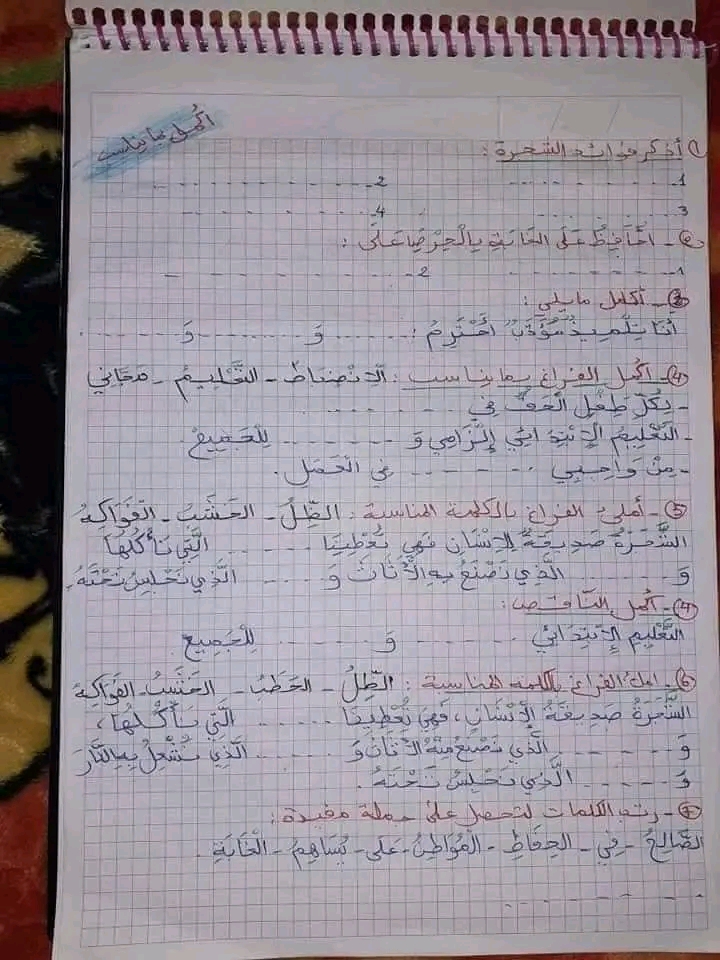 أكمل بما يناسب
1) أذكر فوائد الشجرة :
1- - - - - - - - - 2- - - - - - - - -
3- - - - - - - - - 4- - - - - - - - -
2 - أُحَافِظُ عَلَى الغَابَةِ بِالْحِرْصِ عَلَى :
1- - - - - - - - - 2- - - - - - - - -
3 - أكمل مايلي :
أَنَا تِلْمِيذٌ "مُؤَدَّبٌ" أَحْتَرِمُ : - - - - - وَ - - - - - - وَ - - - - - - .
4 - أكمل الفراغ بما يناسب : الإِنْضِبَاطُ - التَّعْلِيمُ - مَجَّانِي
- لِكُلِّ طِفْلٍ الْحَقُّ فِي - - - - - - -
- التَّعْلِيمُ الإِبْتِدَائِي إِلْزَامِي وَ - - - - - - لِلْجَمِيعْ.
- مِنْ وَاجِبِي - - - - - - فِي العَمَلِ.
5 - أملئ الفراغ بالكلمة المناسبة : الظِّلُ - الخَشَبَ - الفَوَاكِهُ
الشَّجَرَةُ صَدِيقَةُ الإِنْسَانِ فَهِيَ تُعْطِينَا - - - - - - الَّتِي نَأْكُلُهَا
وَ - - - - - - الَّذِي نَصْنَعُ بِهِ الأَثَاثَ وَ - - - - - الَّذِي نَجْلِسُ تَحْتَهُ.
4 - أكمل الناقص :
التَّعْلِيمِ الإِبْتِدَائِيُّ - - - - - - وَ - - - - - - لِلْجَمِيعِ
6 - املئ الفراغ بالكلمة المناسبة : الظِّلُ - الحَطَبُ - الخَشَبُ - الفَوَاكِهُ
الشَّجَرَةُ صَدِيقَةُ الإِنْسَانِ، فَهِيَ تُعْطِينَا - - - - - - الَّتِي نَأْكُلُهَا،
وَ - - - - - - الَّذِي نَصْنَعُ مِنْهُ الأَثَاثَ وَ - - - - - - الَّذِي نُشْعِلُ بِهِ النَّارَ
وَ - - - - - - الَّذِي نَجْلِسُ تَحْتَهُ.
7 - رتب الكلمات لتحصل على جملة مفيدة :
الصَّالِحُ - فِي - الحِفَاظِ - المُوَاطِنُ - عَلَى - يُسَاهِمُ - الْغَابَةِ .
- - - - - - - - - -